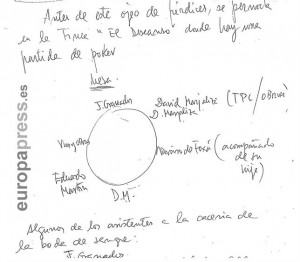 Antes de este ojeo de perdices, se pernocta
en la Finca "El Descanso" donde hay una
partida de poker
Mesa.
J. Granados
David Marjaliza (TPC/obras)
D. Marjaliza
(acompañado
de su
hijo)
Eduardo
D.M.
Algunos de los asistentes a la cacería de
la boda de sangre:
J. Granados
europapress.es